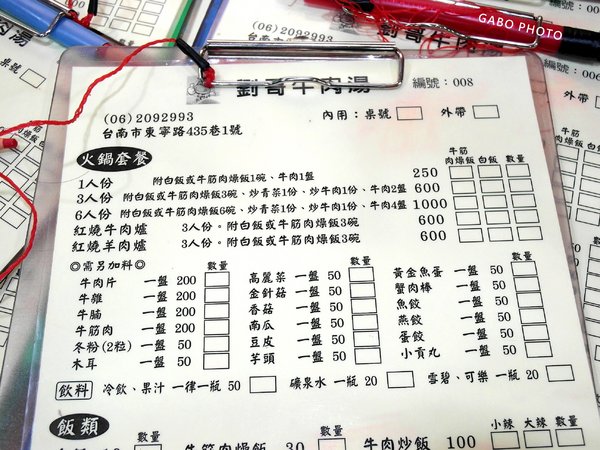 GABO PHOTO
劉哥牛肉湯 編號：008
(06)2092993 內用：桌號 外帶
台南市東寧路435巷1號
火鍋套餐 牛筋肉燥飯 白飯 數量
1人份 附白飯或牛筋肉燥飯1碗、牛肉1盤 250
3人份 附白飯或牛筋肉燥飯3碗、炒青菜1份、炒牛肉1份、牛肉2盤 600
6人份 附白飯或牛筋肉燥飯6碗、炒青菜1份、炒牛肉1份、牛肉4盤 1000
紅燒牛肉爐 3人份。附白飯或牛筋肉燥飯3碗 600
紅燒羊肉爐 3人份。附白飯或牛筋肉燥飯3碗 600
◎需另加料◎ 數量 數量 數量
牛肉片 一盤 200 高麗菜 一盤 50 黃金魚蛋 一盤 50
牛雜 一盤 200 金針菇 一盤 50 蟹肉棒 一盤 50
牛腩 一盤 200 香菇 一盤 50 魚餃 一盤 50
牛筋肉 一盤 200 南瓜 一盤 50 燕餃 一盤 50
冬粉(2粒) 一盤 50 豆皮 一盤 50 蛋餃 一盤 50
木耳 一盤 50 芋頭 一盤 50 小貢丸 一盤 50
飲料 冷飲、果汁 一律一瓶 50 礦泉水 一瓶 20 雪碧、可樂 一瓶 20
飯類 數量 數量 小辣 大辣 數量
牛筋肉燥飯 30 牛肉炒飯 100
肉湯
桌號
編號：006
外帶